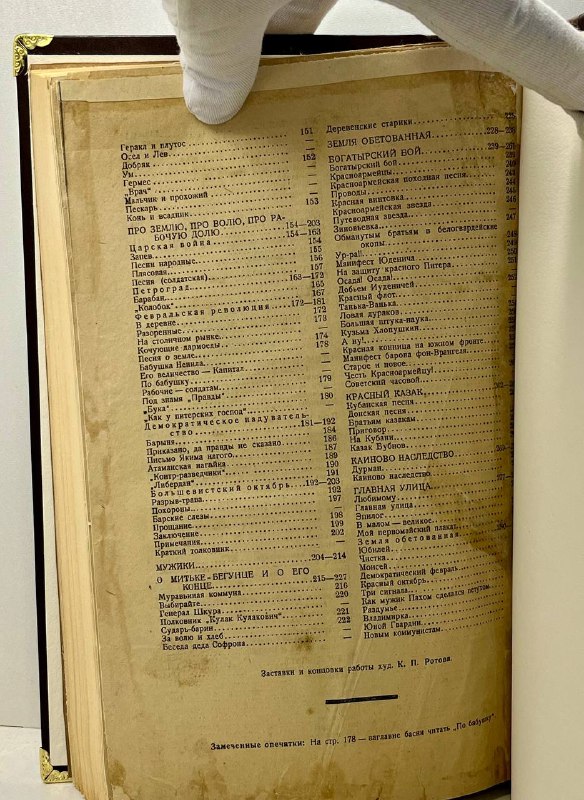 Геракл и плутос 151
Осел и Лев —
Добряк 152
Ум —
Гермес —
„Врач“ —
Мальчик и прохожий —
Пескарь 153
Конь и всадник —
ПРО ЗЕМЛЮ, ПРО ВОЛЮ, ПРО РА-
БОЧУЮ ДОЛЮ 154—203
Царская война 154—163
Запев 154
Песни народные 155
Плясовая 156
Песня (солдатская) 157
Петроград 163—172
Барабан 165
„Колобок“ 167
Февральская революция 172—181
В деревне 172
Разоренные 173
На столичном рынке —
Кочующие дармоеды 174
Песня о земле 178
Бабушка Ненила —
Его величество — Капитал —
По бабушку —
Рабочие — солдатам 179
Под знамя „Правды“ —
„Бука“ 180
„Как у питерских господ“ —
Демократическое надуватель-
ство 181—192
Барыня 184
Приказано, да правды не сказано 186
Письмо Якима нагого 187
Атаманская нагайка 189
„Контр-разведчики“ 190
„Либердан“ 191
Большевистский октябрь 192—203
Разрыв-трава 192
Похороны 197
Барские слезы —
Прощание 198
Заключение 199
Примечания 202
Краткий толковник —
МУЖИКИ 204—214
О МИТЬКЕ-БЕГУНЦЕ И О ЕГО
КОНЦЕ 215—227
Муравьиная коммуна 216
Выбирайте 220
Генерал Шкура —
Полковник „Кулак Кулакович“ 221
Сударь-барин 222
За волю и хлеб —
Беседа деда Софрона —
Деревенские старики
ЗЕМЛЯ ОБЕТОВАННАЯ
БОГАТЫРСКИЙ БОЙ
Богатырский бой
Красноармейцы
Красноармейская походная песня
Проводы
Красная винтовка
Красноармейская звезда
Путеводная звезда
Зиновьевка
Обманутым братьям в белогвардейские
окопы
Ур-ра!!
Манифест Юденича
На защиту красного Питера
Осада! Осада!
Добьем Иуденичей
Красный флот
Танька-Ванька
Ловля дураков
Большая штука-наука
Кузьма Хлопушкин
А ну!
Красная конница на южном фронте
Манифест барона фон-Врангеля
Старое и новое
Честь Красноармейцу!
Советский часовой
КРАСНЫЙ КАЗАК
Кубанская песня
Донская песня
Братьям казакам
Приговор
На Кубани
Казак Бубнов
КАИНОВО НАСЛЕДСТВО
Дурман
Каиново наследство
ГЛАВНАЯ УЛИЦА
Любимому
Главная улица
Эпилог
В малом — великое
Мой первомайский плакат
Земля обетованная
Юбилей
Чистка
Моисей
Демократический февраль
Красный октябрь
Три сигнала
Как мужик Пахом сделался петухом
Гладуны
Владимирка
Юной Гвардии
Новым коммунистам
Заставки и концовки работы худ. К. П. Ротова.
Замеченные опечатки: На стр. 178 — заглавие басни читать „По бабушку“.